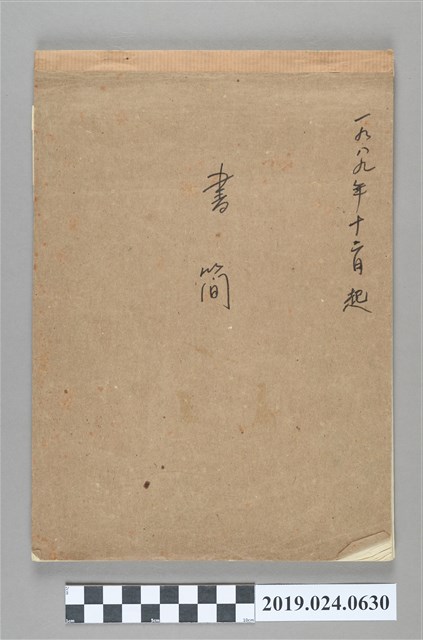 一九八九年十二月起
書簡
2019.024.0630